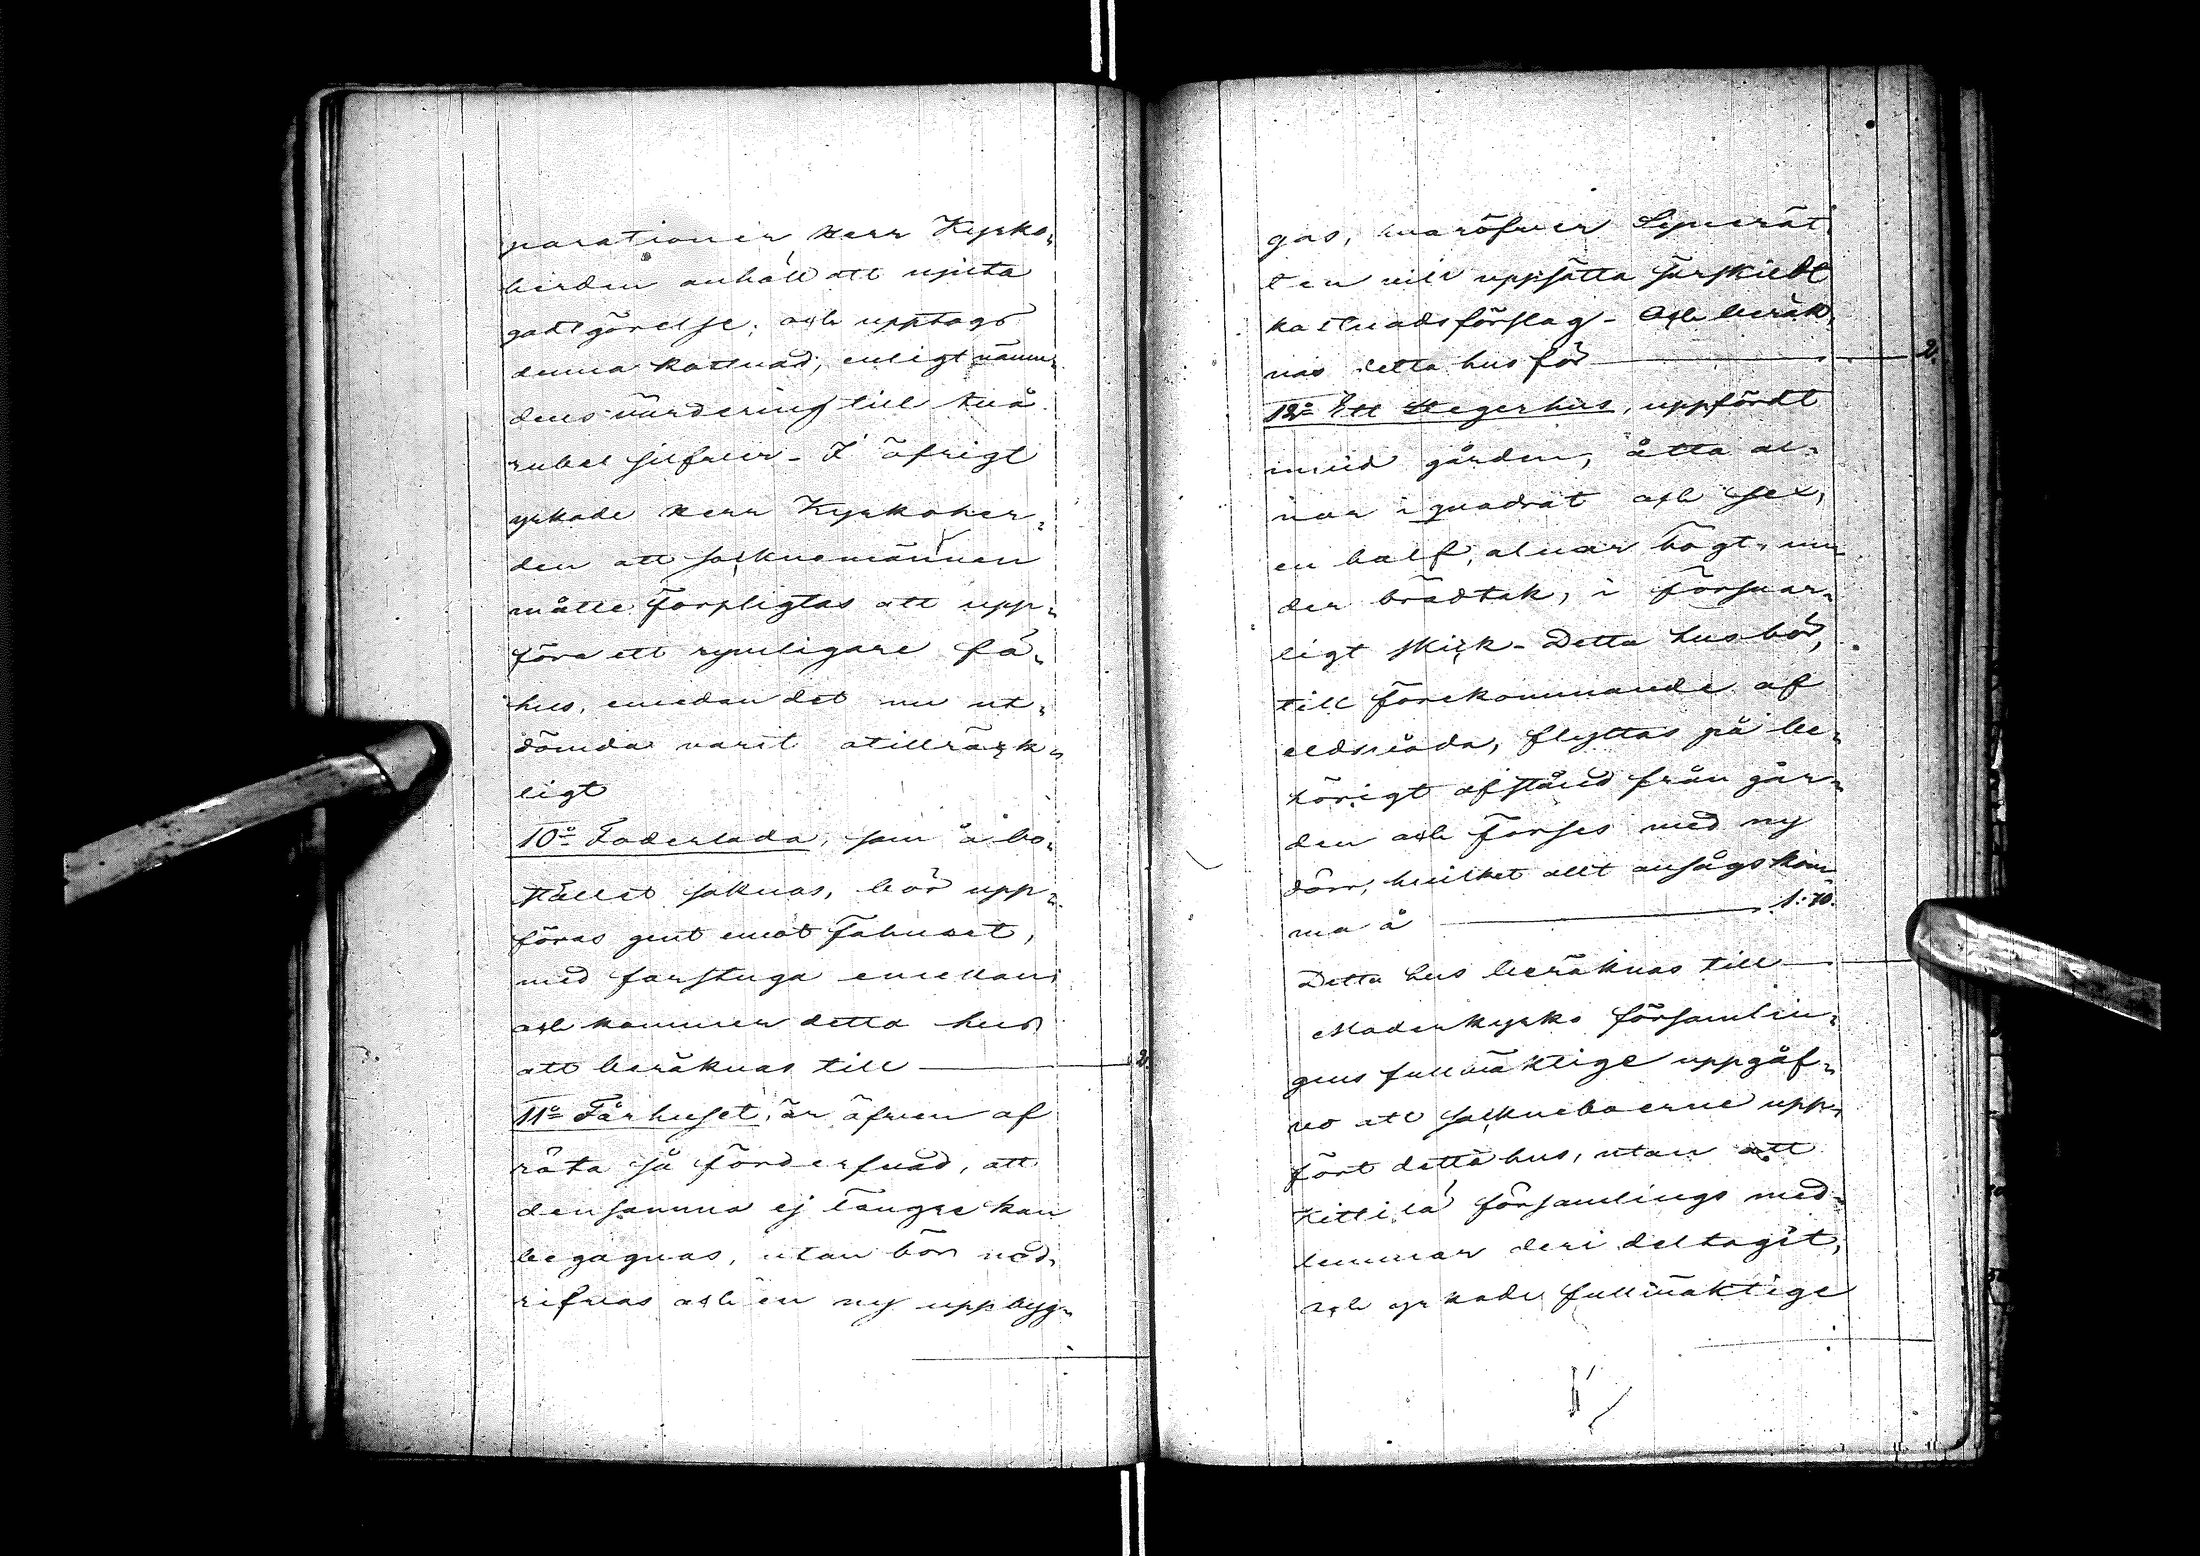 parationer Herr Kyrko-
herden anhöll att njuta
godtgörelse; och upptogs
denna kostnad, enligt nämn-
dens värdering till två
rubel silfver - I öfrigt
yrkade Herr Kyrkoher-
den att socknemännen
måtte förpligtas att upp-
föra ett rymligare fä-
hus, emedan det nu ut-
dömda varit otillräck-
ligt
10o Foderlada, som å bo-
stället saknas, bör upp-
föras gent emot Fähuset,
med farstuga emellan
och kommer detta hus
att beräknas till 2.
11o Fårhuset, är äfven af
röta så förderfvad, att
densamma ej längre kan
begagnas, utan bör ned-
rifvas och en ny uppbyg-
gas, hvaröfver Synerät-
ten vill uppsätta särskildt
kostnadsförslag - Och beräk-
nas detta hus för 2.
12o Ett Stegerhus, uppfördt
invid gården, åtta al-
nar i quadrat och sex,
en half, alnar högt, un-
der brädtak, i försvar-
ligt skick - Detta hus bör,
till förekommande af
eldsvåda, flyttas på be-
hörigt afstånd från går-
den och förses med ny
dörr, hvilket allt ansågs kom-
ma å 1.70.
Detta hus beräknas till
Moderkyrko församlin-
gens fullmäktige uppgåf-
vo att sockneboerne upp-
fört detta hus, utan att
Kittilä församlings med-
lemmar deri deltagit,
och yrkade fullmäktige